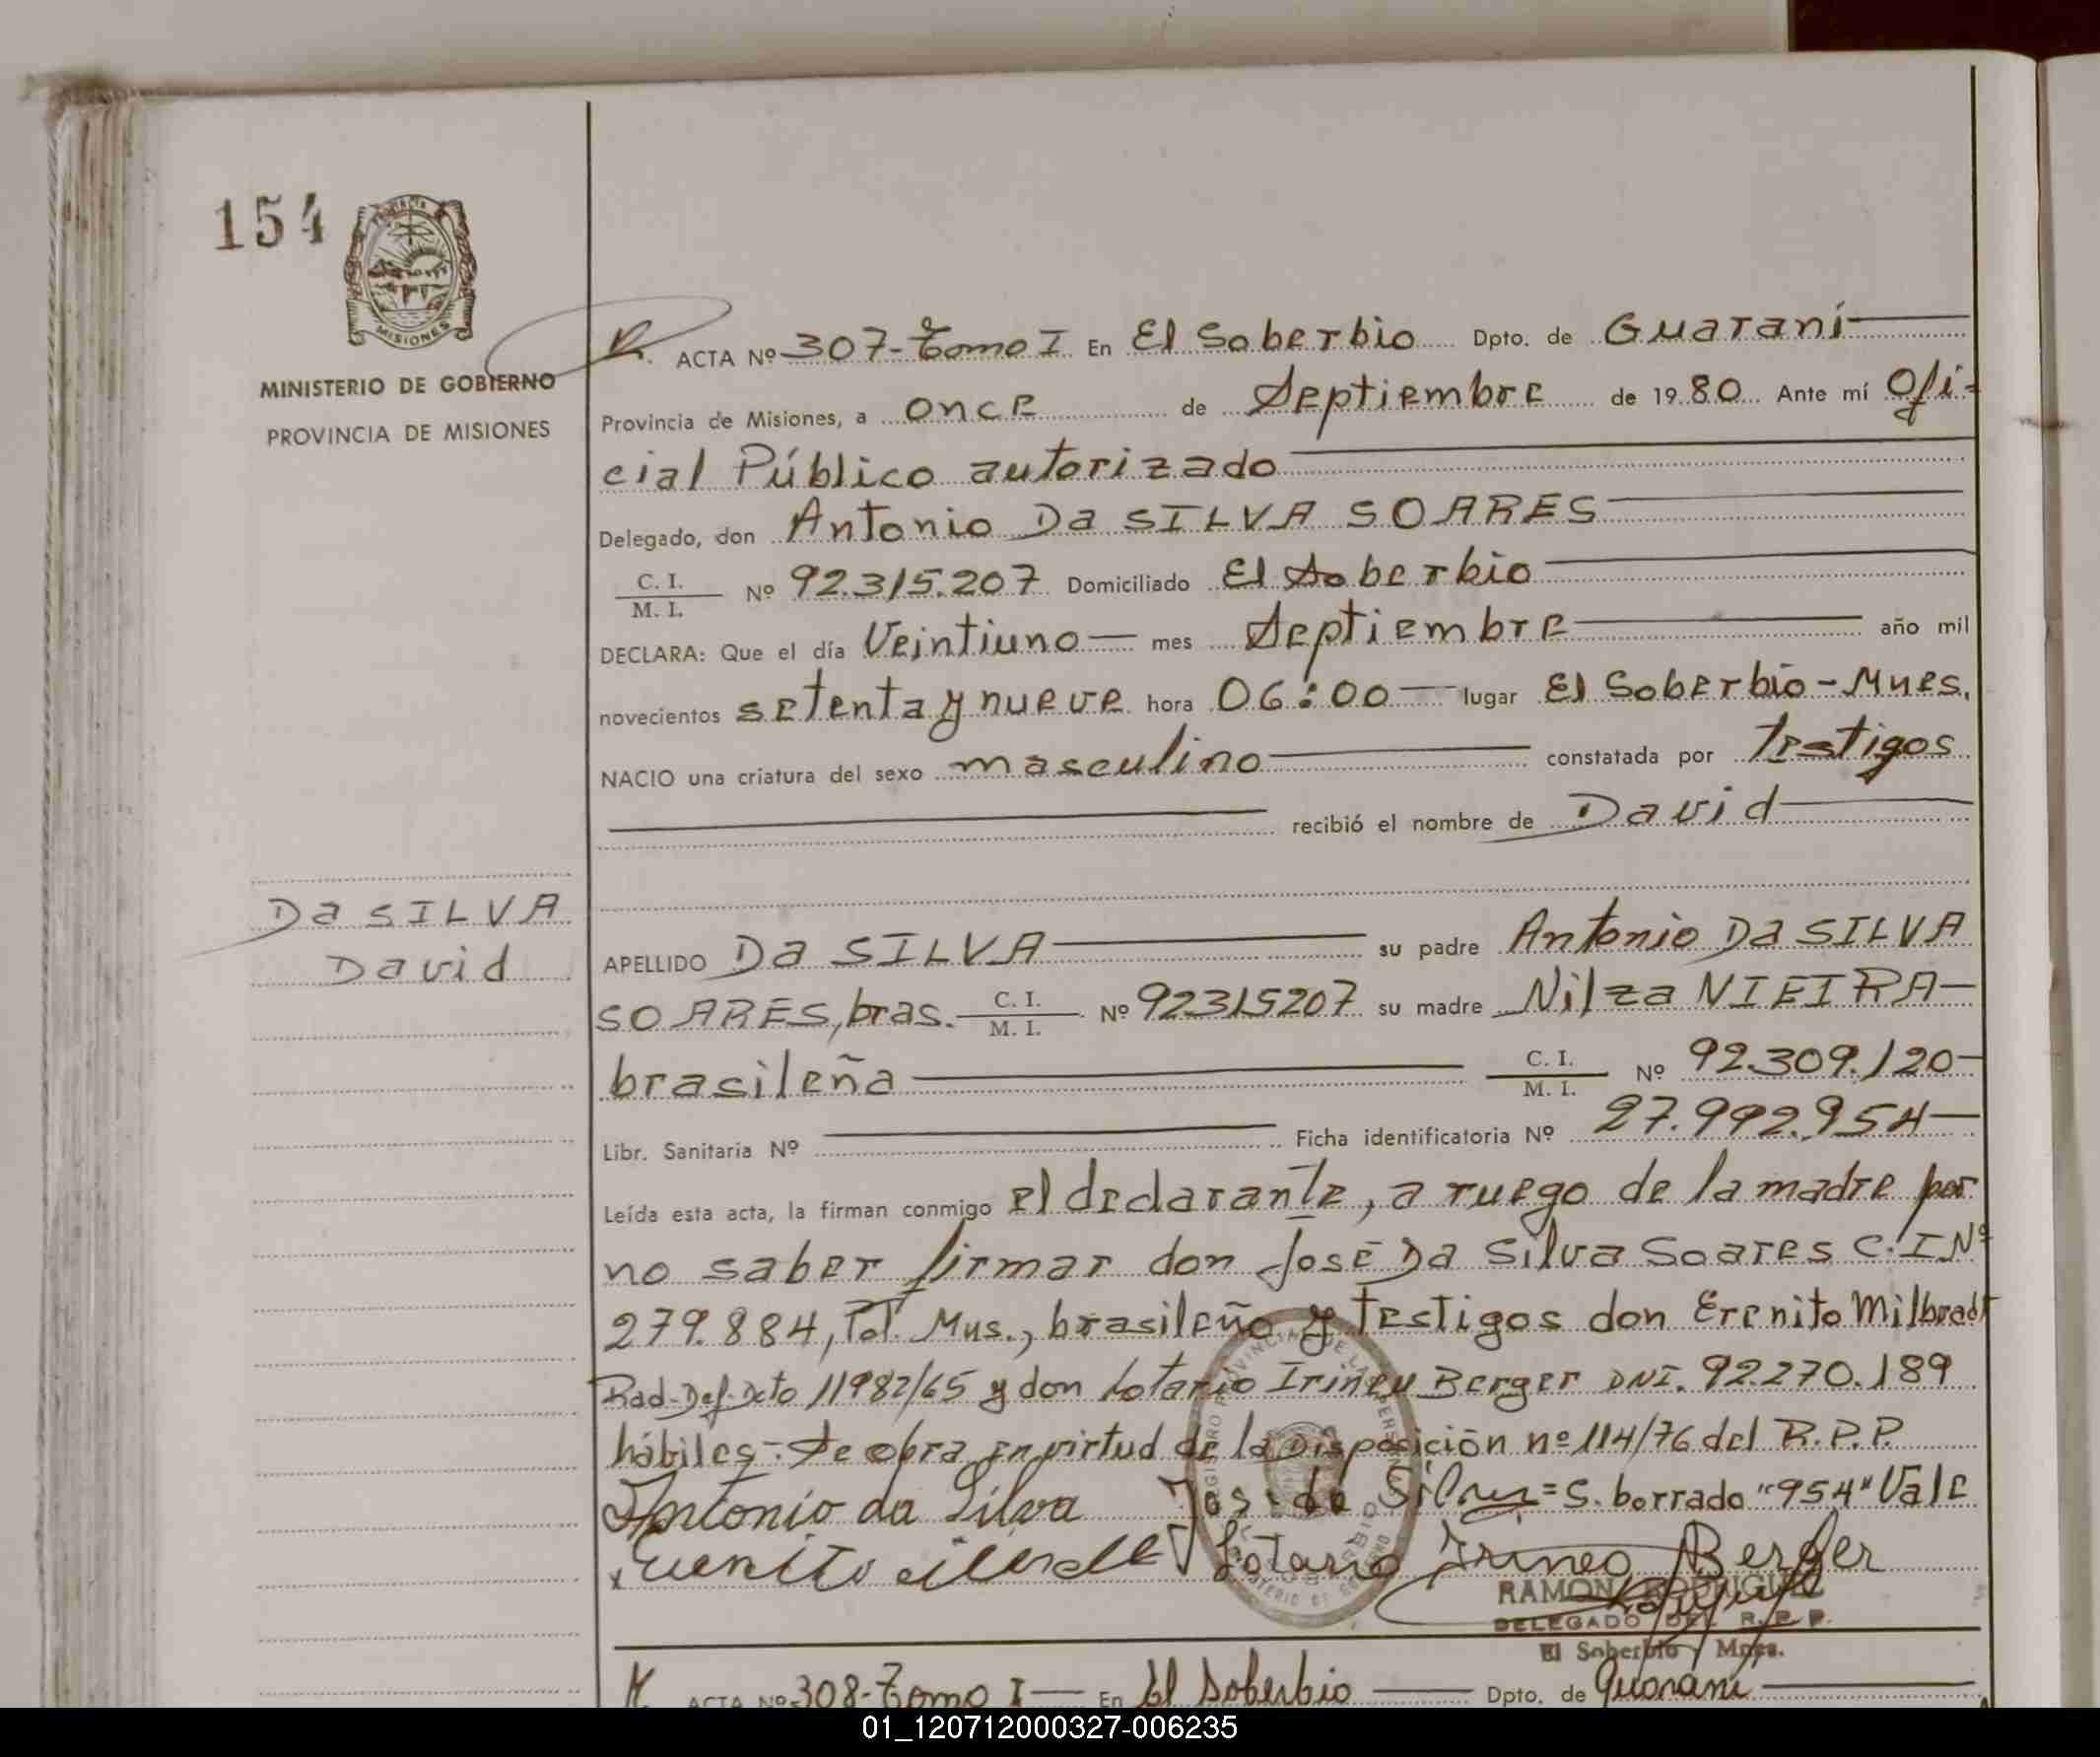 154
PROVINCIA
MISIONES
MINISTERIO DE GOBIERNO
PROVINCIA DE MISIONES
ACTA Nº 307-Tomo I En El Soberbio Dpto. de Guaraní
Provincia de Misiones, a once de Septiembre de 1980 Ante mí Ofi-
cial Público autorizado
Delegado, don Antonio Da SILVA SOARES
C. I.
M. I. Nº 92.315.207 Domiciliado El Soberbio
DECLARA: Que el día Veintiuno mes Septiembre año mil
novecientos setenta y nueve hora 06:00 lugar El Soberbio-Mnes.
NACIO una criatura del sexo masculino constatada por testigos
recibió el nombre de David
Da SILVA
David
APELLIDO Da SILVA su padre Antonio Da SILVA
SOARES, bras. C. I. M. I. Nº 92315207 su madre Nilza VIEIRA
brasileña C. I. M. I. Nº 92.309.120
Libr. Sanitaria Nº Ficha identificatoria Nº 27.992.954
Leída esta acta, la firman conmigo el declarante, a ruego de la madre por
no saber firmar don José Da Silva Soares C.I Nº
279.884, Pol. Mns., brasileño y testigos don Erenito Milbradt
Rad-Def-Dcto 11982/65 y don Lotario Irineu Berger DNI. 92.270.189
hábiles- Se obra en virtud de la Disposición nº 114/76 del R.P.P.
Antonio da Silva José da Silva = S. borrado "954" Vale
Lotario Irineo Berger
RAMON RODRIGUEZ
DELEGADO DEL R. P. P.
El Soberbio Mnes.
ACTA Nº 308-Tomo I En El Soberbio Dpto. de Guaraní
01_120712000327-006235